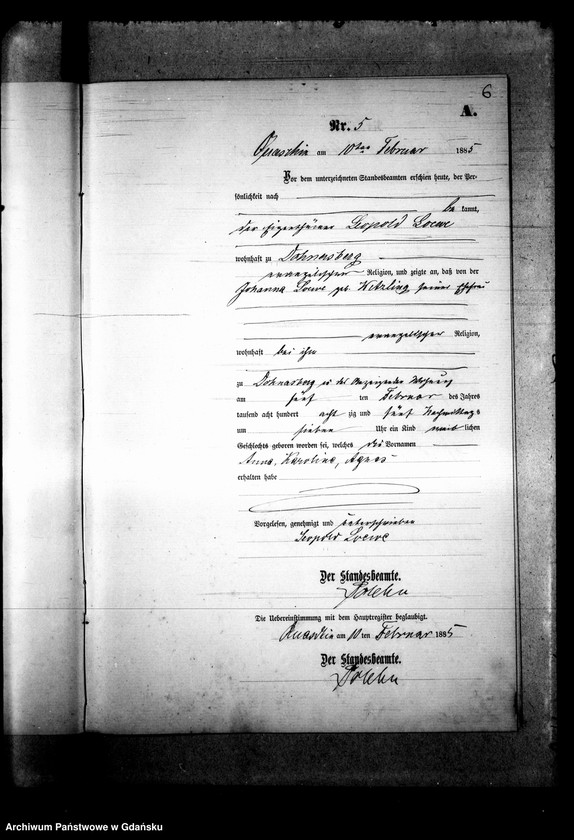 6
A.
Nr. 5
Quaschin am 10ten Februar 1885
Vor dem unterzeichneten Standesbeamten erschien heute, der Per-
sönlichkeit nach
be kannt,
der Eigenthümer Leopold Loewe
wohnhaft zu Dohnasberg
evangelischer Religion, und zeigte an, daß von der
Johanna Loewe geb. Wetzling seiner Ehefrau
evangelischer Religion,
wohnhaft bei ihm
zu Dohnasberg in der Anzeigenden Wohnung
am fünf ten Februar des Jahres
tausend acht hundert acht zig und fünf Nachmittags
um sieben Uhr ein Kind weib lichen
Geschlechts geboren worden sei, welches die Vornamen
Anna, Karoline, Agnes
erhalten habe
Vorgelesen, genehmigt und unterschrieben
Leopold Loewe
Der Standesbeamte.
Die Uebereinstimmung mit dem Hauptregister beglaubigt.
Quaschin am 10 ten Februar 1885
Der Standesbeamte.
Archiwum Państwowe w Gdańsku